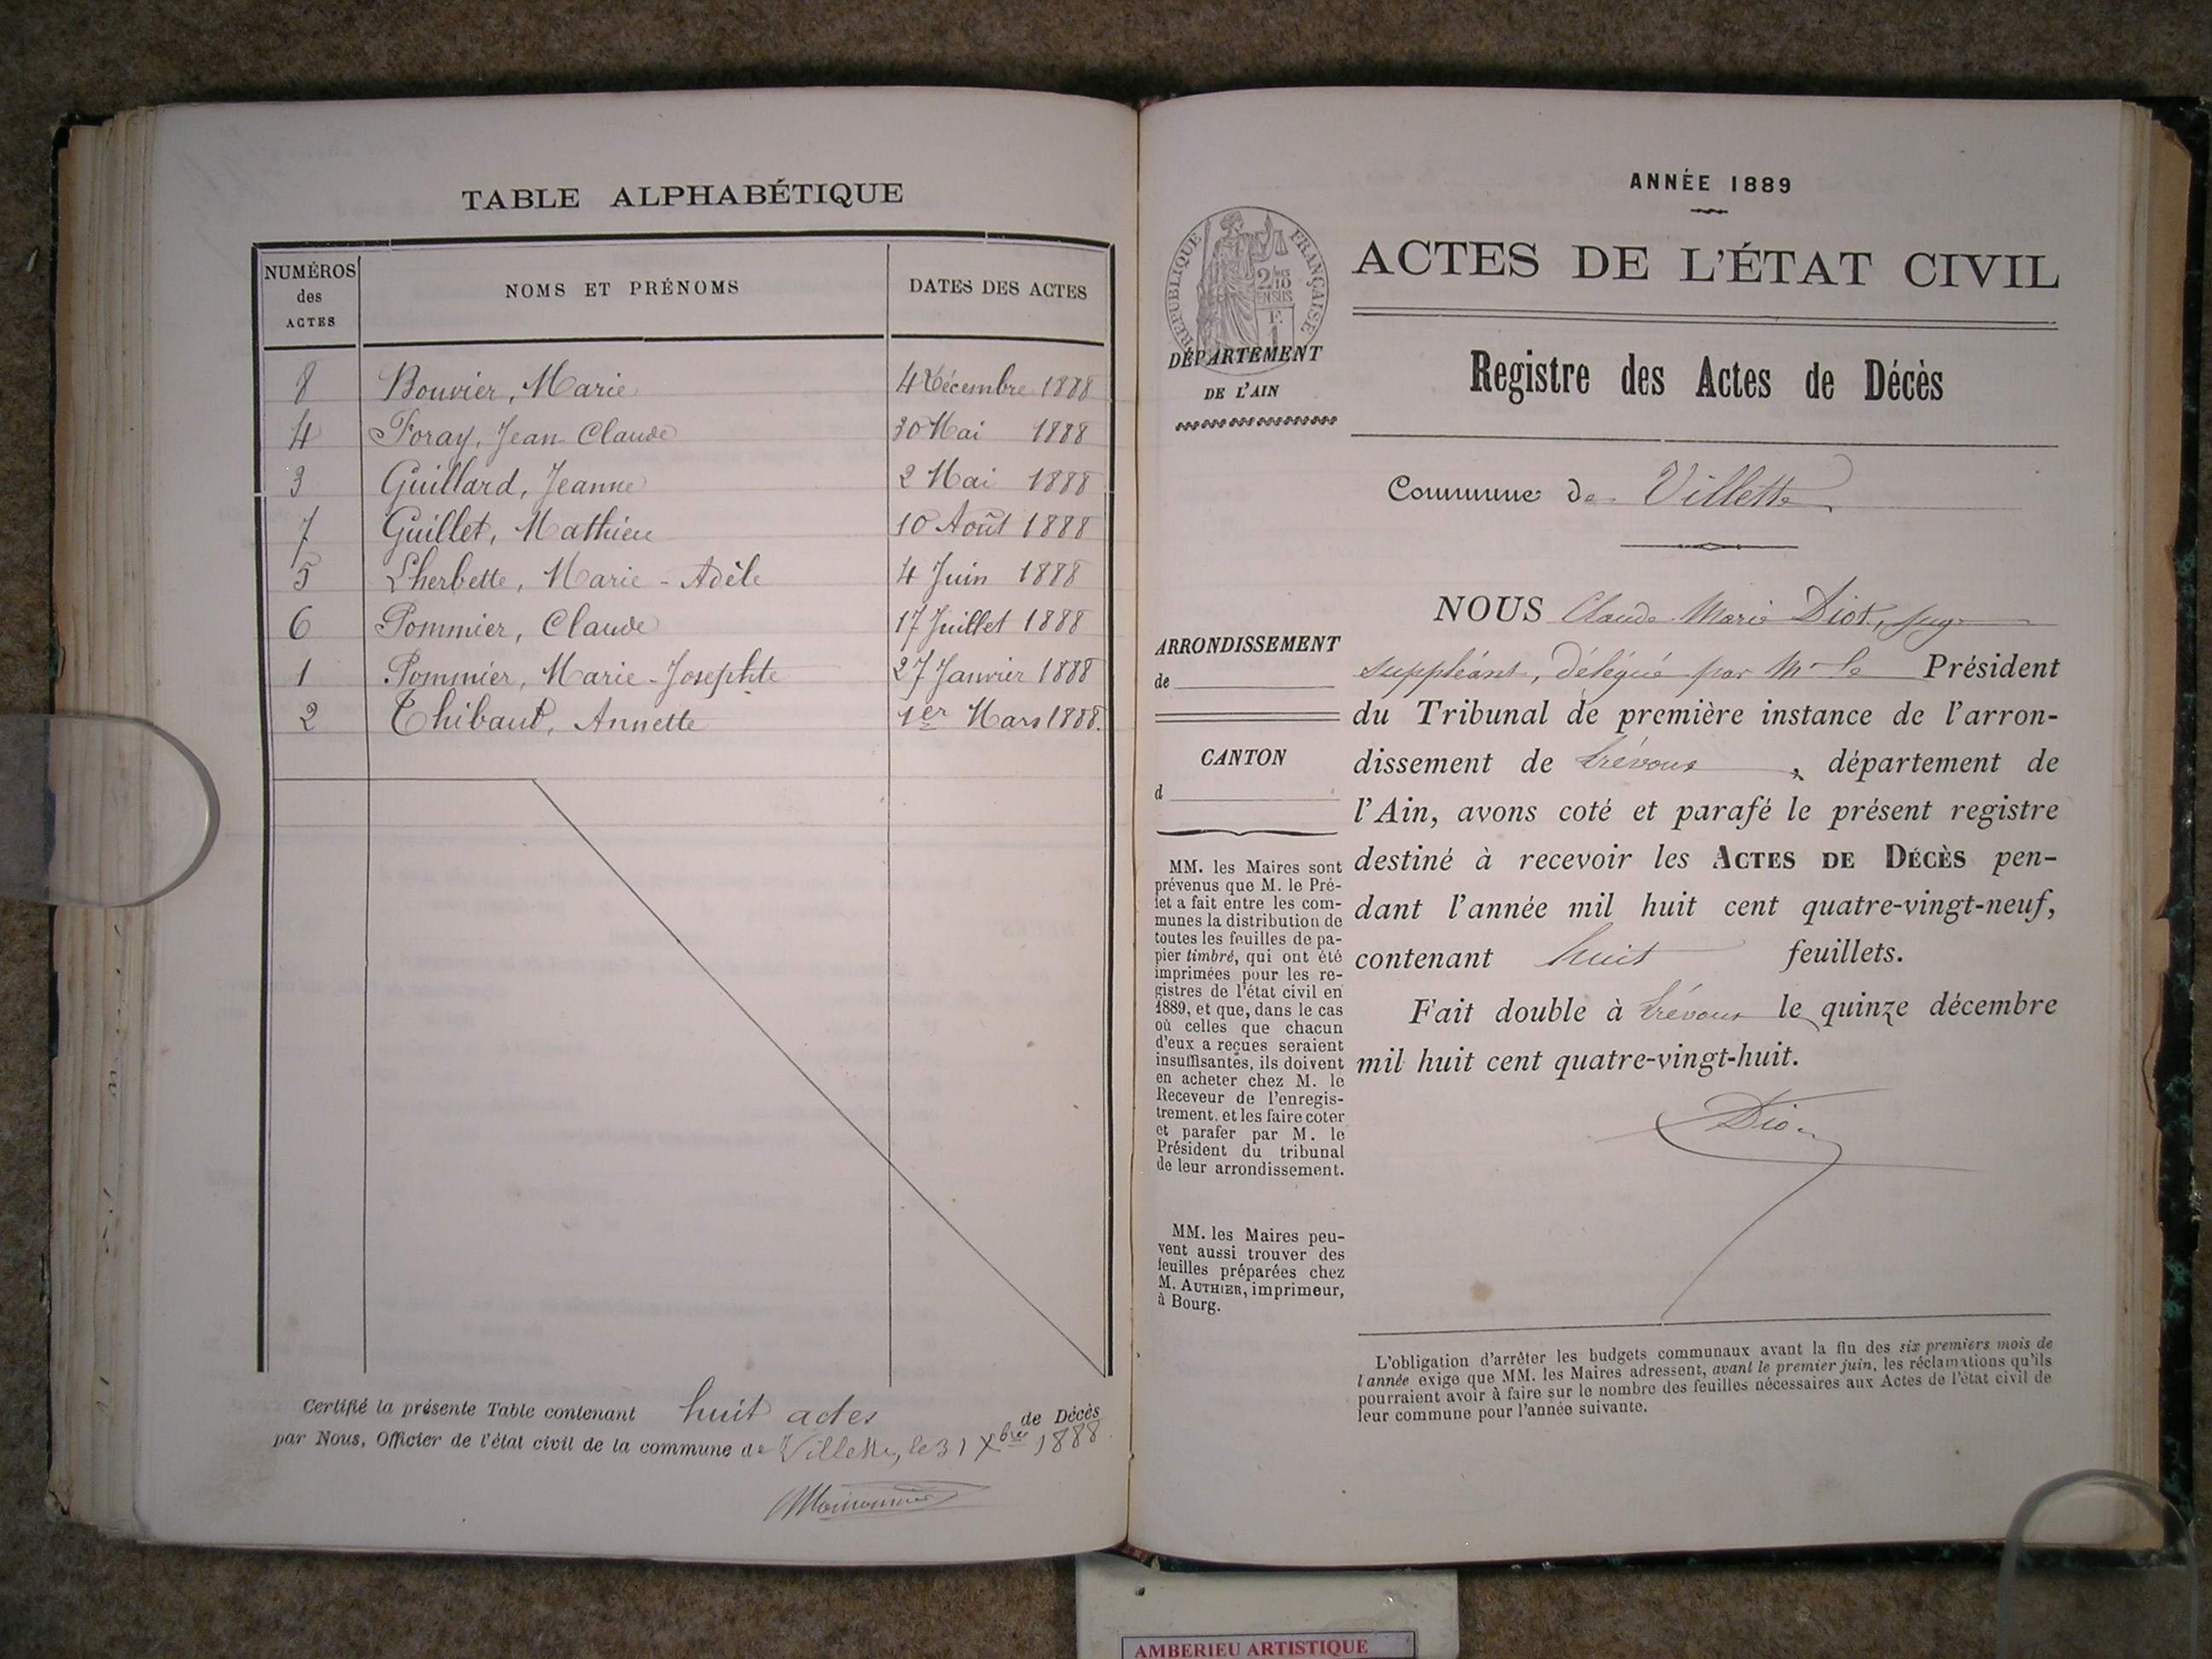 TABLE ALPHABÉTIQUE
NUMÉROS
des
ACTES
NOMS ET PRÉNOMS
DATES DES ACTES
8 Bouvier, Marie 4 Décembre 1888
4 Foray, Jean-Claude 30 Mai 1888
3 Guillard, Jeanne 2 Mai 1888
7 Guillet, Mathieu 10 Août 1888
5 Lherbette, Marie-Adèle 4 Juin 1888
6 Pommier, Claude 17 Juillet 1888
1 Pommier, Marie-Josephte 27 Janvier 1888
2 Thibaud, Annette 1er Mars 1888.
Certifié la présente Table contenant huit actes de Décès
par Nous, Officier de l'état civil de la commune de Villette, le 31 Xbre 1888.
ANNÉE 1889
RÉPUBLIQUE FRANÇAISE
2/10
EN SUS
F.
1
ACTES DE L'ÉTAT CIVIL
DÉPARTEMENT
DE L'AIN
Registre des Actes de Décès
Commune de Villette
ARRONDISSEMENT
de
CANTON
d
MM. les Maires sont
prévenus que M. le Pré-
fet a fait entre les com-
munes la distribution de
toutes les feuilles de pa-
pier timbré, qui ont été
imprimées pour les re-
gistres de l'état civil en
1889, et que, dans le cas
où celles que chacun
d'eux a reçues seraient
insuffisantes, ils doivent
en acheter chez M. le
Receveur de l'enregis-
trement, et les faire coter
et parafer par M. le
Président du tribunal
de leur arrondissement.
MM. les Maires peu-
vent aussi trouver des
feuilles préparées chez
M. AUTHIER, imprimeur,
à Bourg.
NOUS Claude Marie Diot, juge
suppléant, délégué par Mr le Président
du Tribunal de première instance de l'arron-
dissement de Trévoux, département de
l'Ain, avons coté et parafé le présent registre
destiné à recevoir les ACTES DE DÉCÈS pen-
dant l'année mil huit cent quatre-vingt-neuf,
contenant huit feuillets.
Fait double à Trévoux le quinze décembre
mil huit cent quatre-vingt-huit.
Diot
L'obligation d'arrêter les budgets communaux avant la fin des six premiers mois de
l'année exige que MM. les Maires adressent, avant le premier juin, les réclamations qu'ils
pourraient avoir à faire sur le nombre des feuilles nécessaires aux Actes de l'état civil de
leur commune pour l'année suivante.
AMBERIEU ARTISTIQUE